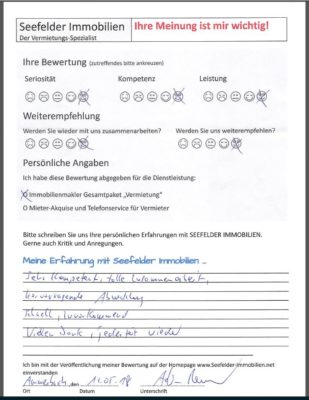 Seefelder Immobilien
Der Vermietungs-Spezialist
Ihre Meinung ist mir wichtig!
Ihre Bewertung (zutreffendes bitte ankreuzen)
Seriosität Kompetenz Leistung
Weiterempfehlung
Werden Sie wieder mit uns zusammenarbeiten? Werden Sie uns weiterempfehlen?
Persönliche Angaben
Ich habe diese Bewertung abgegeben für die Dienstleistung:
O Immobilienmakler Gesamtpaket „Vermietung“
O Mieter-Akquise und Telefonservice für Vermieter
Bitte schreiben Sie uns Ihre persönlichen Erfahrungen mit SEEFELDER IMMOBILIEN.
Gerne auch Kritik und Anregungen.
Meine Erfahrung mit Seefelder Immobilien ...
Sehr kompetent, tolle Zusammenarbeit,
hervorragende Abwicklung
Schnell, zuvorkommend
Vielen Dank, jederzeit wieder
Ich bin mit der Veröffentlichung meiner Bewertung auf der Homepage www.Seefelder-Immobilien.net
einverstanden
Ort Datum Unterschrift